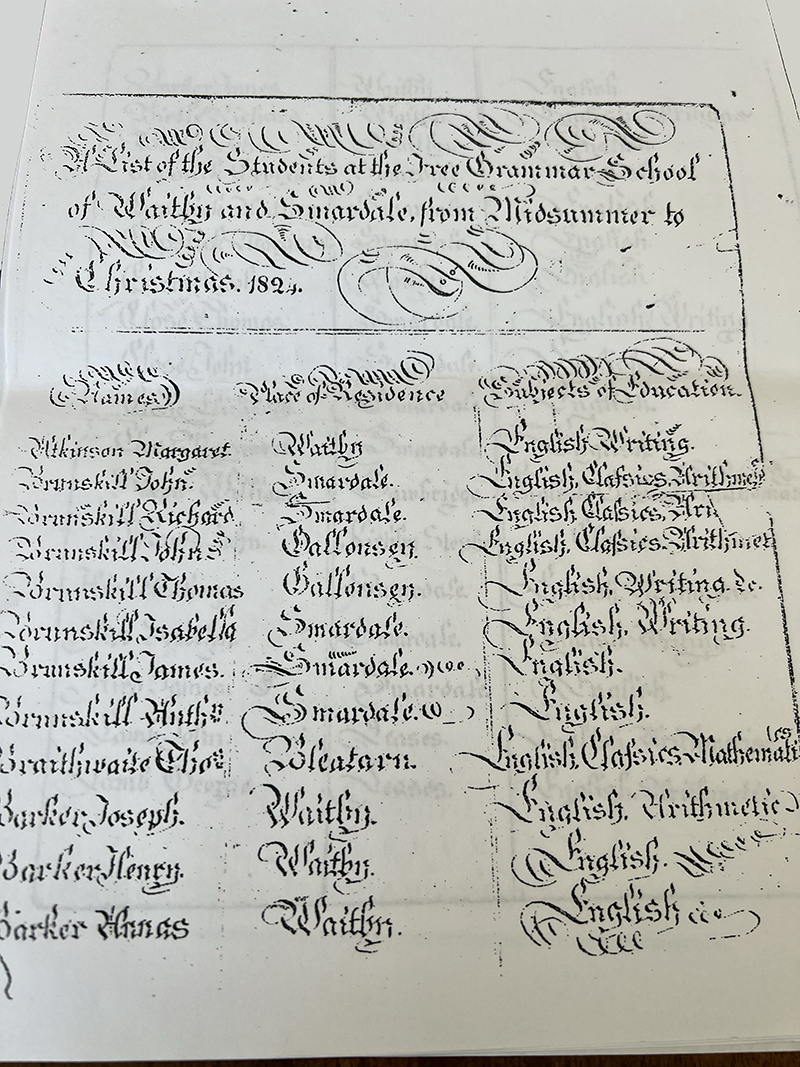 A List of the Students at the Free Grammar School
of Waitby and Smardale, from Midsummer to
Christmas. 1824.
Names Place of Residence Subjects of Education.
Atkinson Margaret. Waitby English, Writing.
Brunskill John. Smardale. English, Classics, Arithmetic
Brunskill Richard. Smardale. English, Classics, Ari
Brunskill John Gallonsey. English, Classics, Arithmet
Brunskill Thomas Gallonsey. English, Writing &c.
Brunskill Isabella Smardale. English, Writing.
Brunskill James. Smardale. English.
Brunskill Anthy Smardale. English.
Braithwaite Thos Bleatarn. English, Classics, Mathematics
Barker Joseph. Waitby. English, Arithmetic
Barker Henry. Waitby. English.
Barker Annas Waitby. English &c